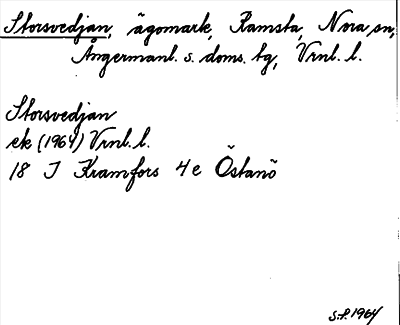 Storsvedjan, ägomark, Ramsta, Nora sn,
Ångermanl. s. doms. tg, Vrnl. l.
Storsvedjan
ek (1964) Vrnl. l.
18 J Kramfors 4e Östanö
S.P. 1964